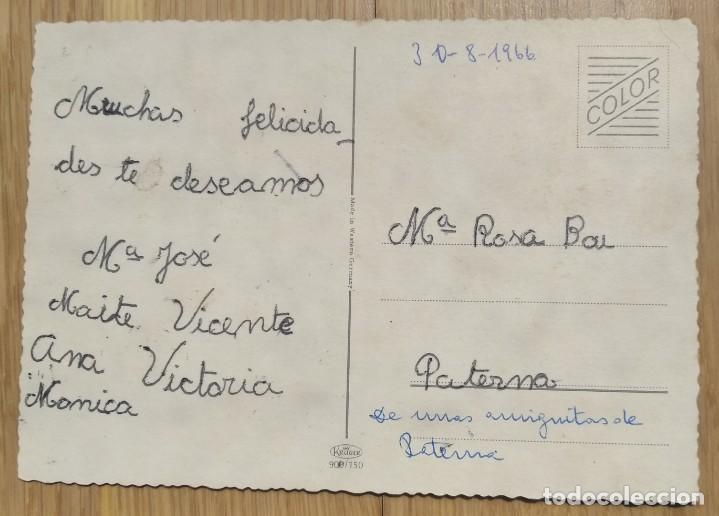 Muchas felicida_
des te deseamos
Mª José
Maite Vicente
Ana Victoria
Monica
Made in Western Germany
Krüger
900/150
30-8-1966
COLOR
Mª Rosa Bou
Paterna
De unas amiguitas de
Paterna
todocoleccion
todocoleccion.net